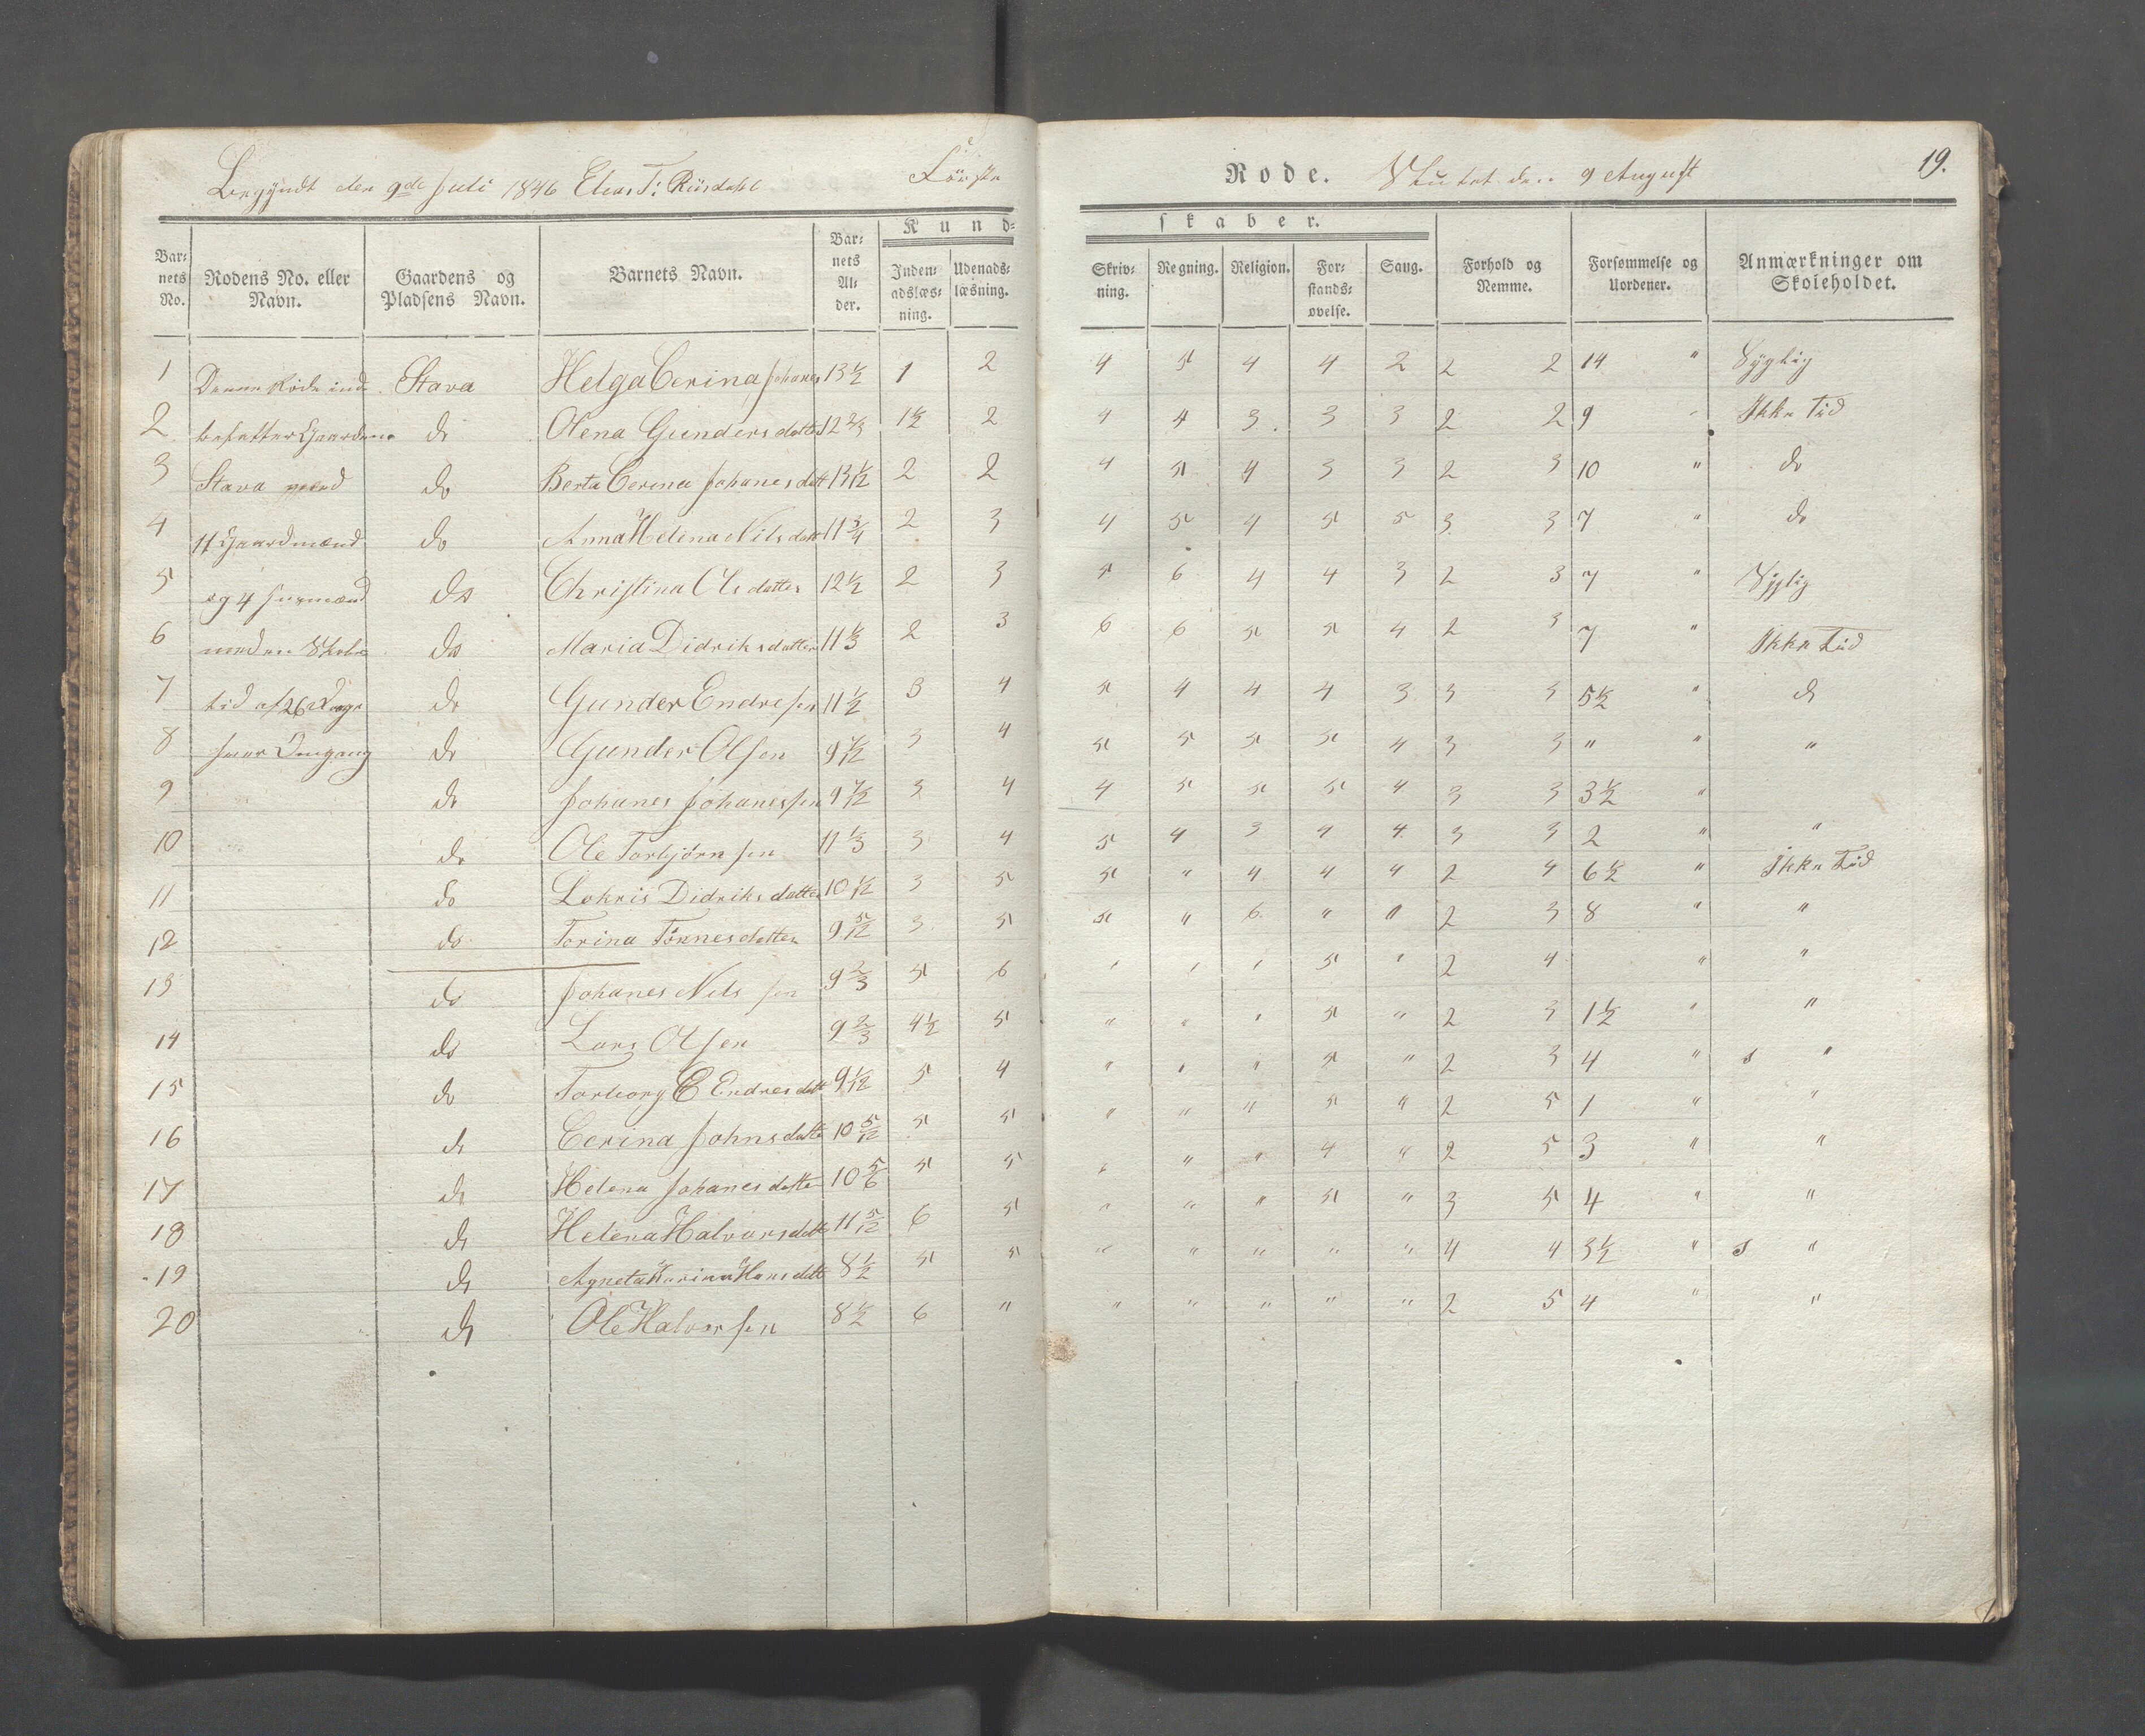 Begyndt den 9de Juli 1846 Elias T: Riisdahl Förste Rode. Sluttet den 9 August 19.
Kundskaber.
Barnets No. Rodens No. eller Navn. Gaardens og Pladsens Navn. Barnets Navn. Barnets Alder. Indenadslæsning. Udenadslæsning. Skrivning. Regning. Religion. Forstandsøvelse. Sang. Forhold og Nemme. Forsømmelse og Uordener. Anmærkninger om Skoleholdet.
1 Denne Rode inde Stava Helga Cerina Johanes 13 1/2 1 2 4 5 4 4 2 2 2 14 " Syglig
2 befatter Gaardene do Olena Gundersdatter 12 2/3 1 1/2 2 4 4 3 3 3 2 2 9 " Ikke Tid
3 Stava med do Berta Cerina Johanesdatt 13 1/12 2 2 4 5 4 3 3 2 3 10 " do
4 11 Gaardmænd do Anna Helena Nilsdatt 11 3/4 2 3 4 5 4 5 5 3 3 7 " do
5 og 4 Huusmænd do Christina Olsdatter 12 1/2 2 3 5 6 4 4 3 2 3 7 " Syglig
6 med en Skole do Maria Didriksdatter 11 1/3 2 3 6 6 5 5 4 2 3 7 " Ikke Tid
7 tid af 26 Dage do Gunder Endresen 11 1/2 3 4 5 4 4 4 3 3 3 5 1/2 " do
8 hver Omgang do Gunder Olsen 9 7/12 3 4 5 5 5 5 4 3 3 " " "
9 do Johanes Johanessen 9 7/12 3 4 4 5 5 5 4 3 3 3 1/2 "
10 do Ole Torbjörnsen 11 1/3 3 4 5 4 3 4 4 3 3 2 " "
11 do Lokris Didriksdatter 10 1/12 3 5 5 " 4 4 4 2 4 6 1/2 " Ikke Tid
12 do Torina Tönnesdatter 9 5/12 3 5 5 " 6 " " 2 3 8 " "
13 do Johanes Nilssen 9 2/3 5 6 " " " 5 " 2 4 " "
14 do Lars Olsen 9 2/3 4 1/2 5 " " " 5 " 2 3 1 1/2 " "
15 do Torborg C Endresdatt 9 1/12 5 4 " " " 5 " 2 3 4 " s "
16 do Cerina Johnsdatte 10 5/12 5 5 " " " 5 " 2 5 1 " "
17 do Helena Johanesdatter 10 5/6 5 5 " " " 4 " 2 5 3 " "
18 do Helena Halvorsdatt 11 5/12 6 5 " " " 5 " 3 5 4 " "
19 do Agneta Karina Hansdatt 8 1/2 5 5 " " " " " 4 4 3 1/2 " s "
20 do Ole Halvorsen 8 1/2 6 " " " " " " 2 5 4 " "